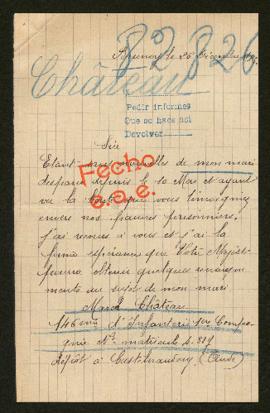 82826
le 26 Décembre
Château
Pedir informes
Que se hace así
Devolver
Sire
Etant sans nouvelles de mon mari
disparu depuis le 10 Mai et ayant
vu la bonté que vous témoignez
envers nos prisonniers,
j'ai recours à vous et j'ai la
ferme espérance que Votre Majesté
pourra obtenir quelques renseigne-
ments au sujet de mon mari
Fecho
Château
146ème d'Infanterie 1ère Compa-
gnie Nº matricule
Dépôt à Castelnaudary (Aude)